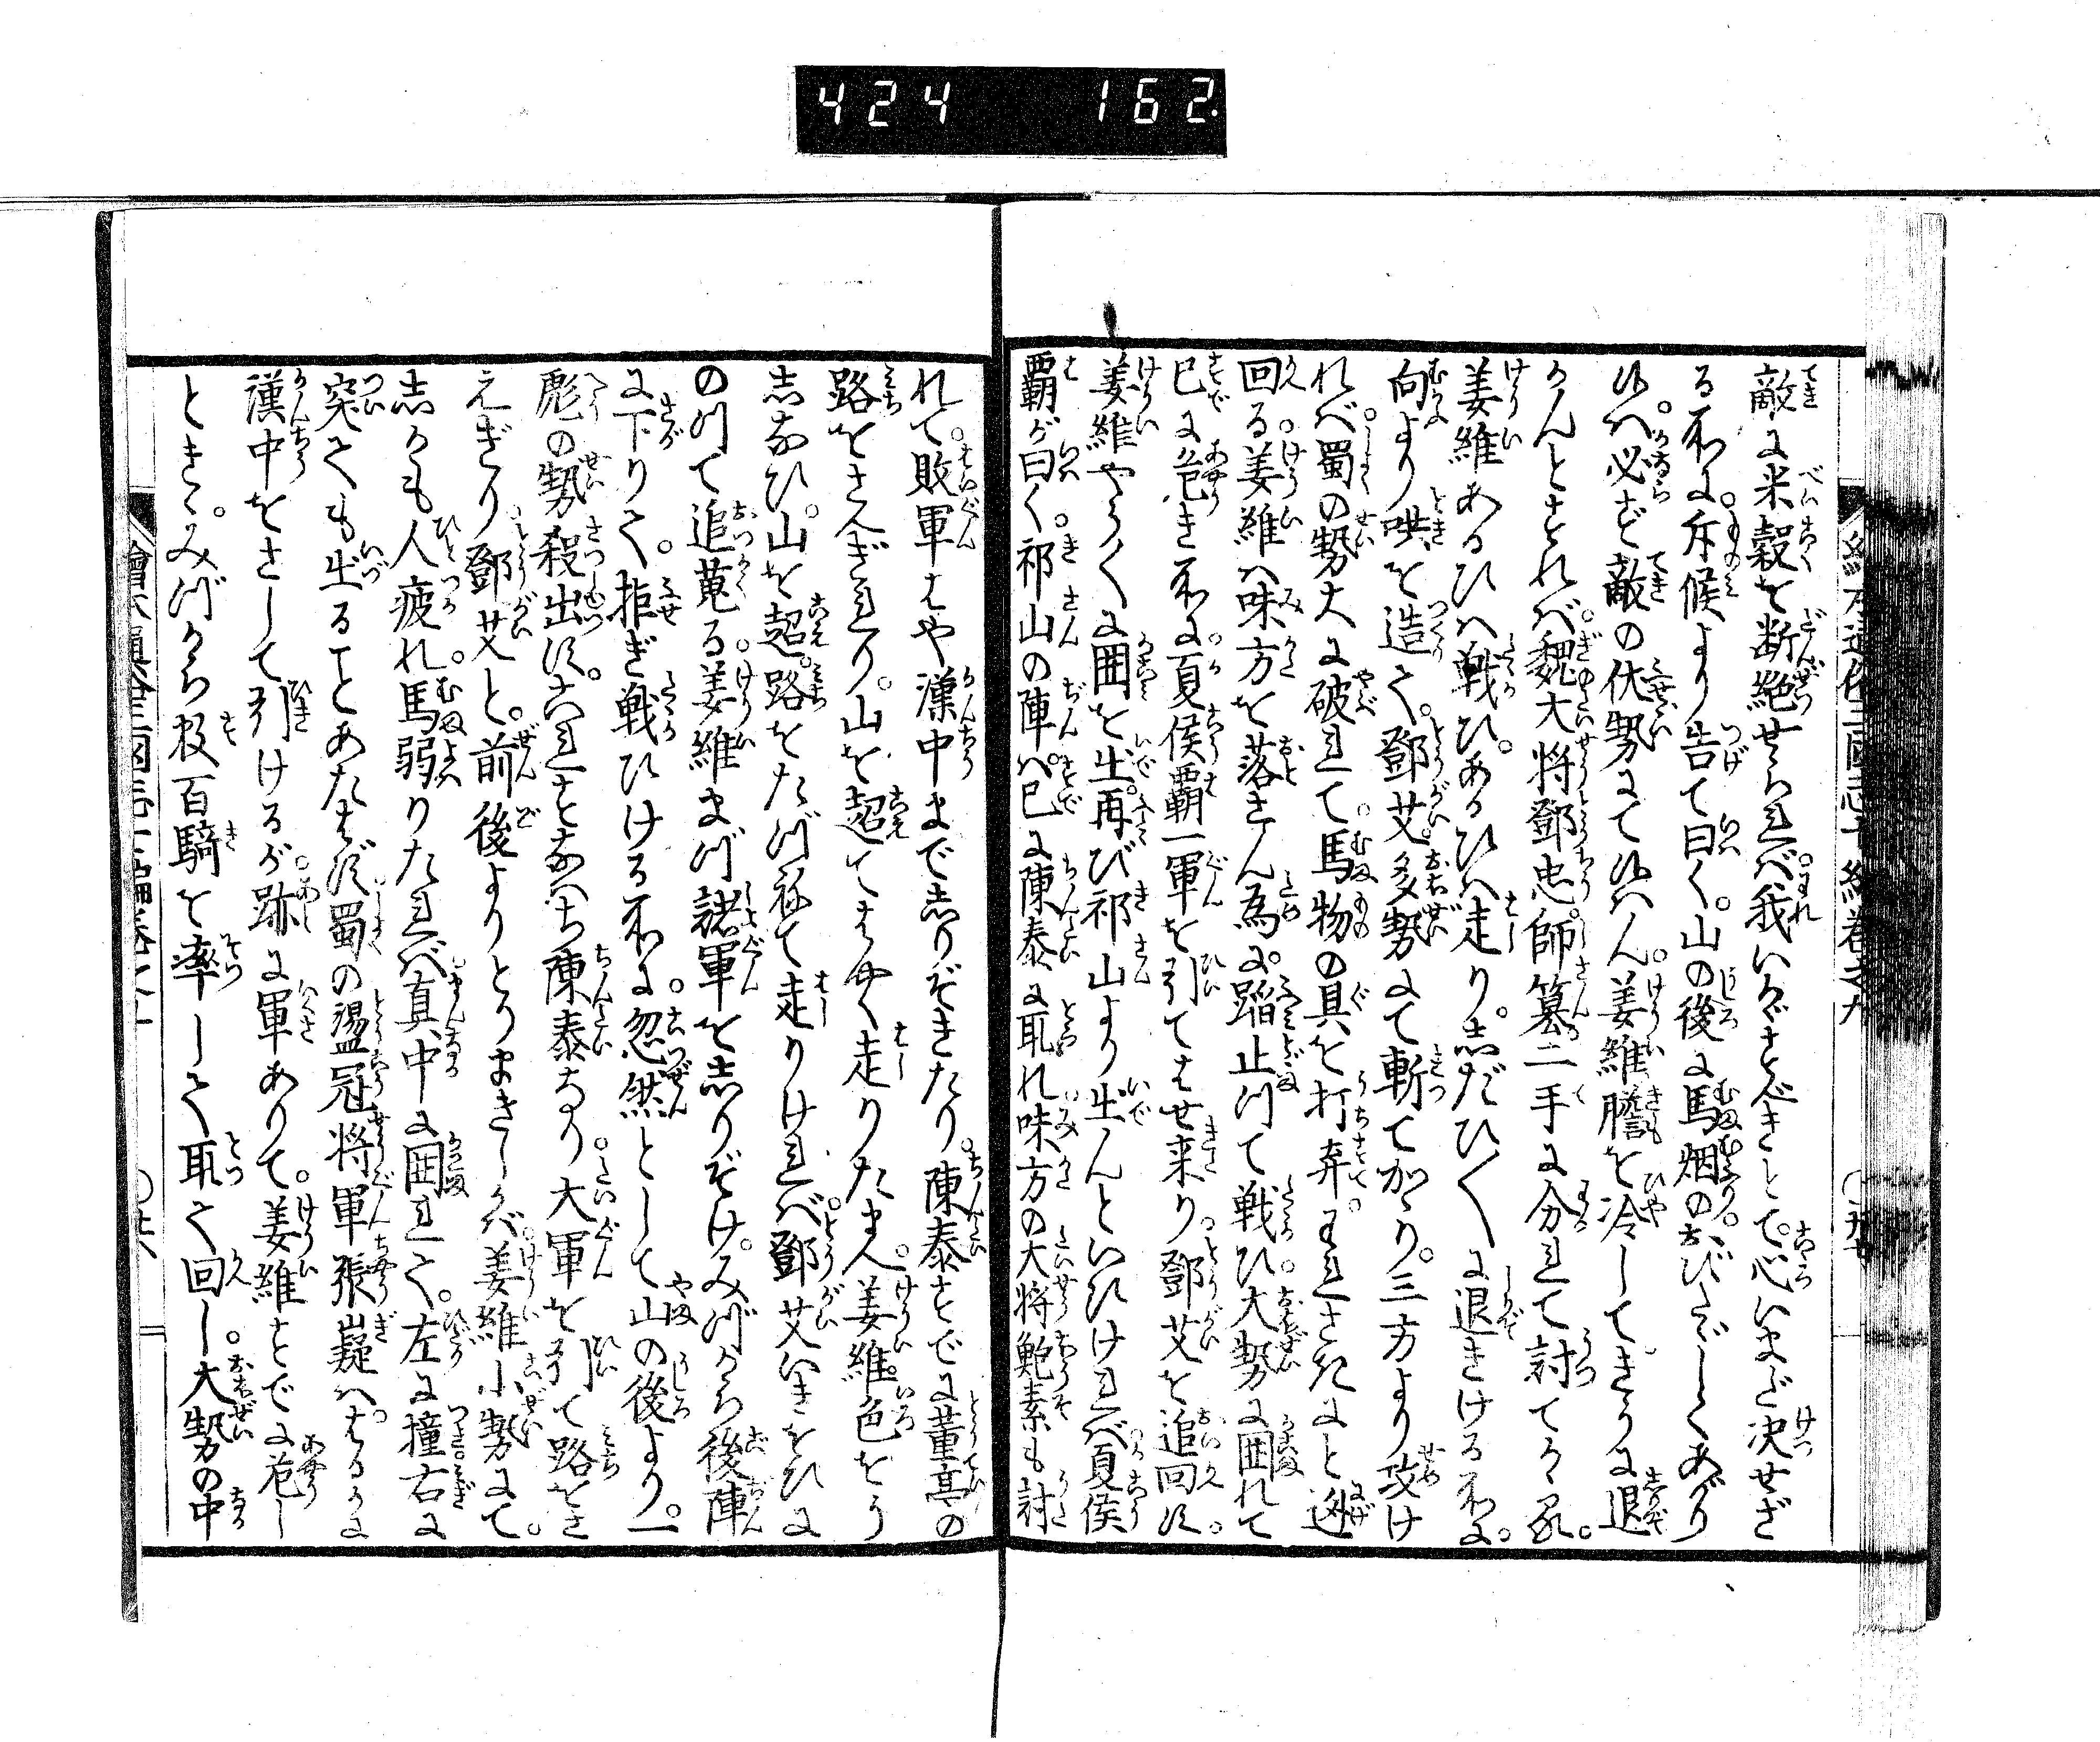 424 162
敵に米穀を断絶せられば我いかがすべきとて心いまだ決せざ
る所に斥候より告て曰く山の後に馬烟のおびただしくあがり
候へ必ず敵の伏勢にて候はん姜維膽を冷してきうに退
かんとすれば魏大将鄧忠師纂二手に分れて討てかゝる
姜維あるひハ戦ひあるひハ走りしだひ〳〵に退きける所に
向より哄を造て鄧艾多勢にて斬てかゝり三方より攻け
れバ蜀の勢大に破れて馬物の具を打弃われさきにと迯
回る姜維ハ味方を落さん為に蹈止つて戦ひ大勢に囲れて
已に危き所に夏侯覇一軍を引てはせ来り鄧艾を追回す
姜維やう〳〵に囲を出再び祁山より出んといひけれバ夏侯
覇が曰く祁山の陣ハ已に陳泰に取れ味方の大将鮑素も討
れて敗軍はや漢中まで志りぞきたり陳泰すでに董亭の
路をさへぎれり山を超てはやく走りたまへ姜維色をう
志なひ山を超路をたづねて走りけれバ鄧艾いきをひに
のつて追蒐る姜維まづ諸軍を志りぞけみづから後陣
に下りて拒ぎ戦ひける所に忽然として山の後より一
彪の勢殺出すこれすなハち陳泰なり大軍を引て路をさ
えぎり鄧艾と前後よりとりまきしかバ姜維小勢にて
志かも人疲れ馬弱りたれバ真中に囲れて左に撞右に
突ども出ることあたはず蜀の盪冠将軍張嶷ハはるかに
漢中をさして引けるが跡に軍ありて姜維すでに危し
ときゝみづから数百騎を率して取て回し大勢の中